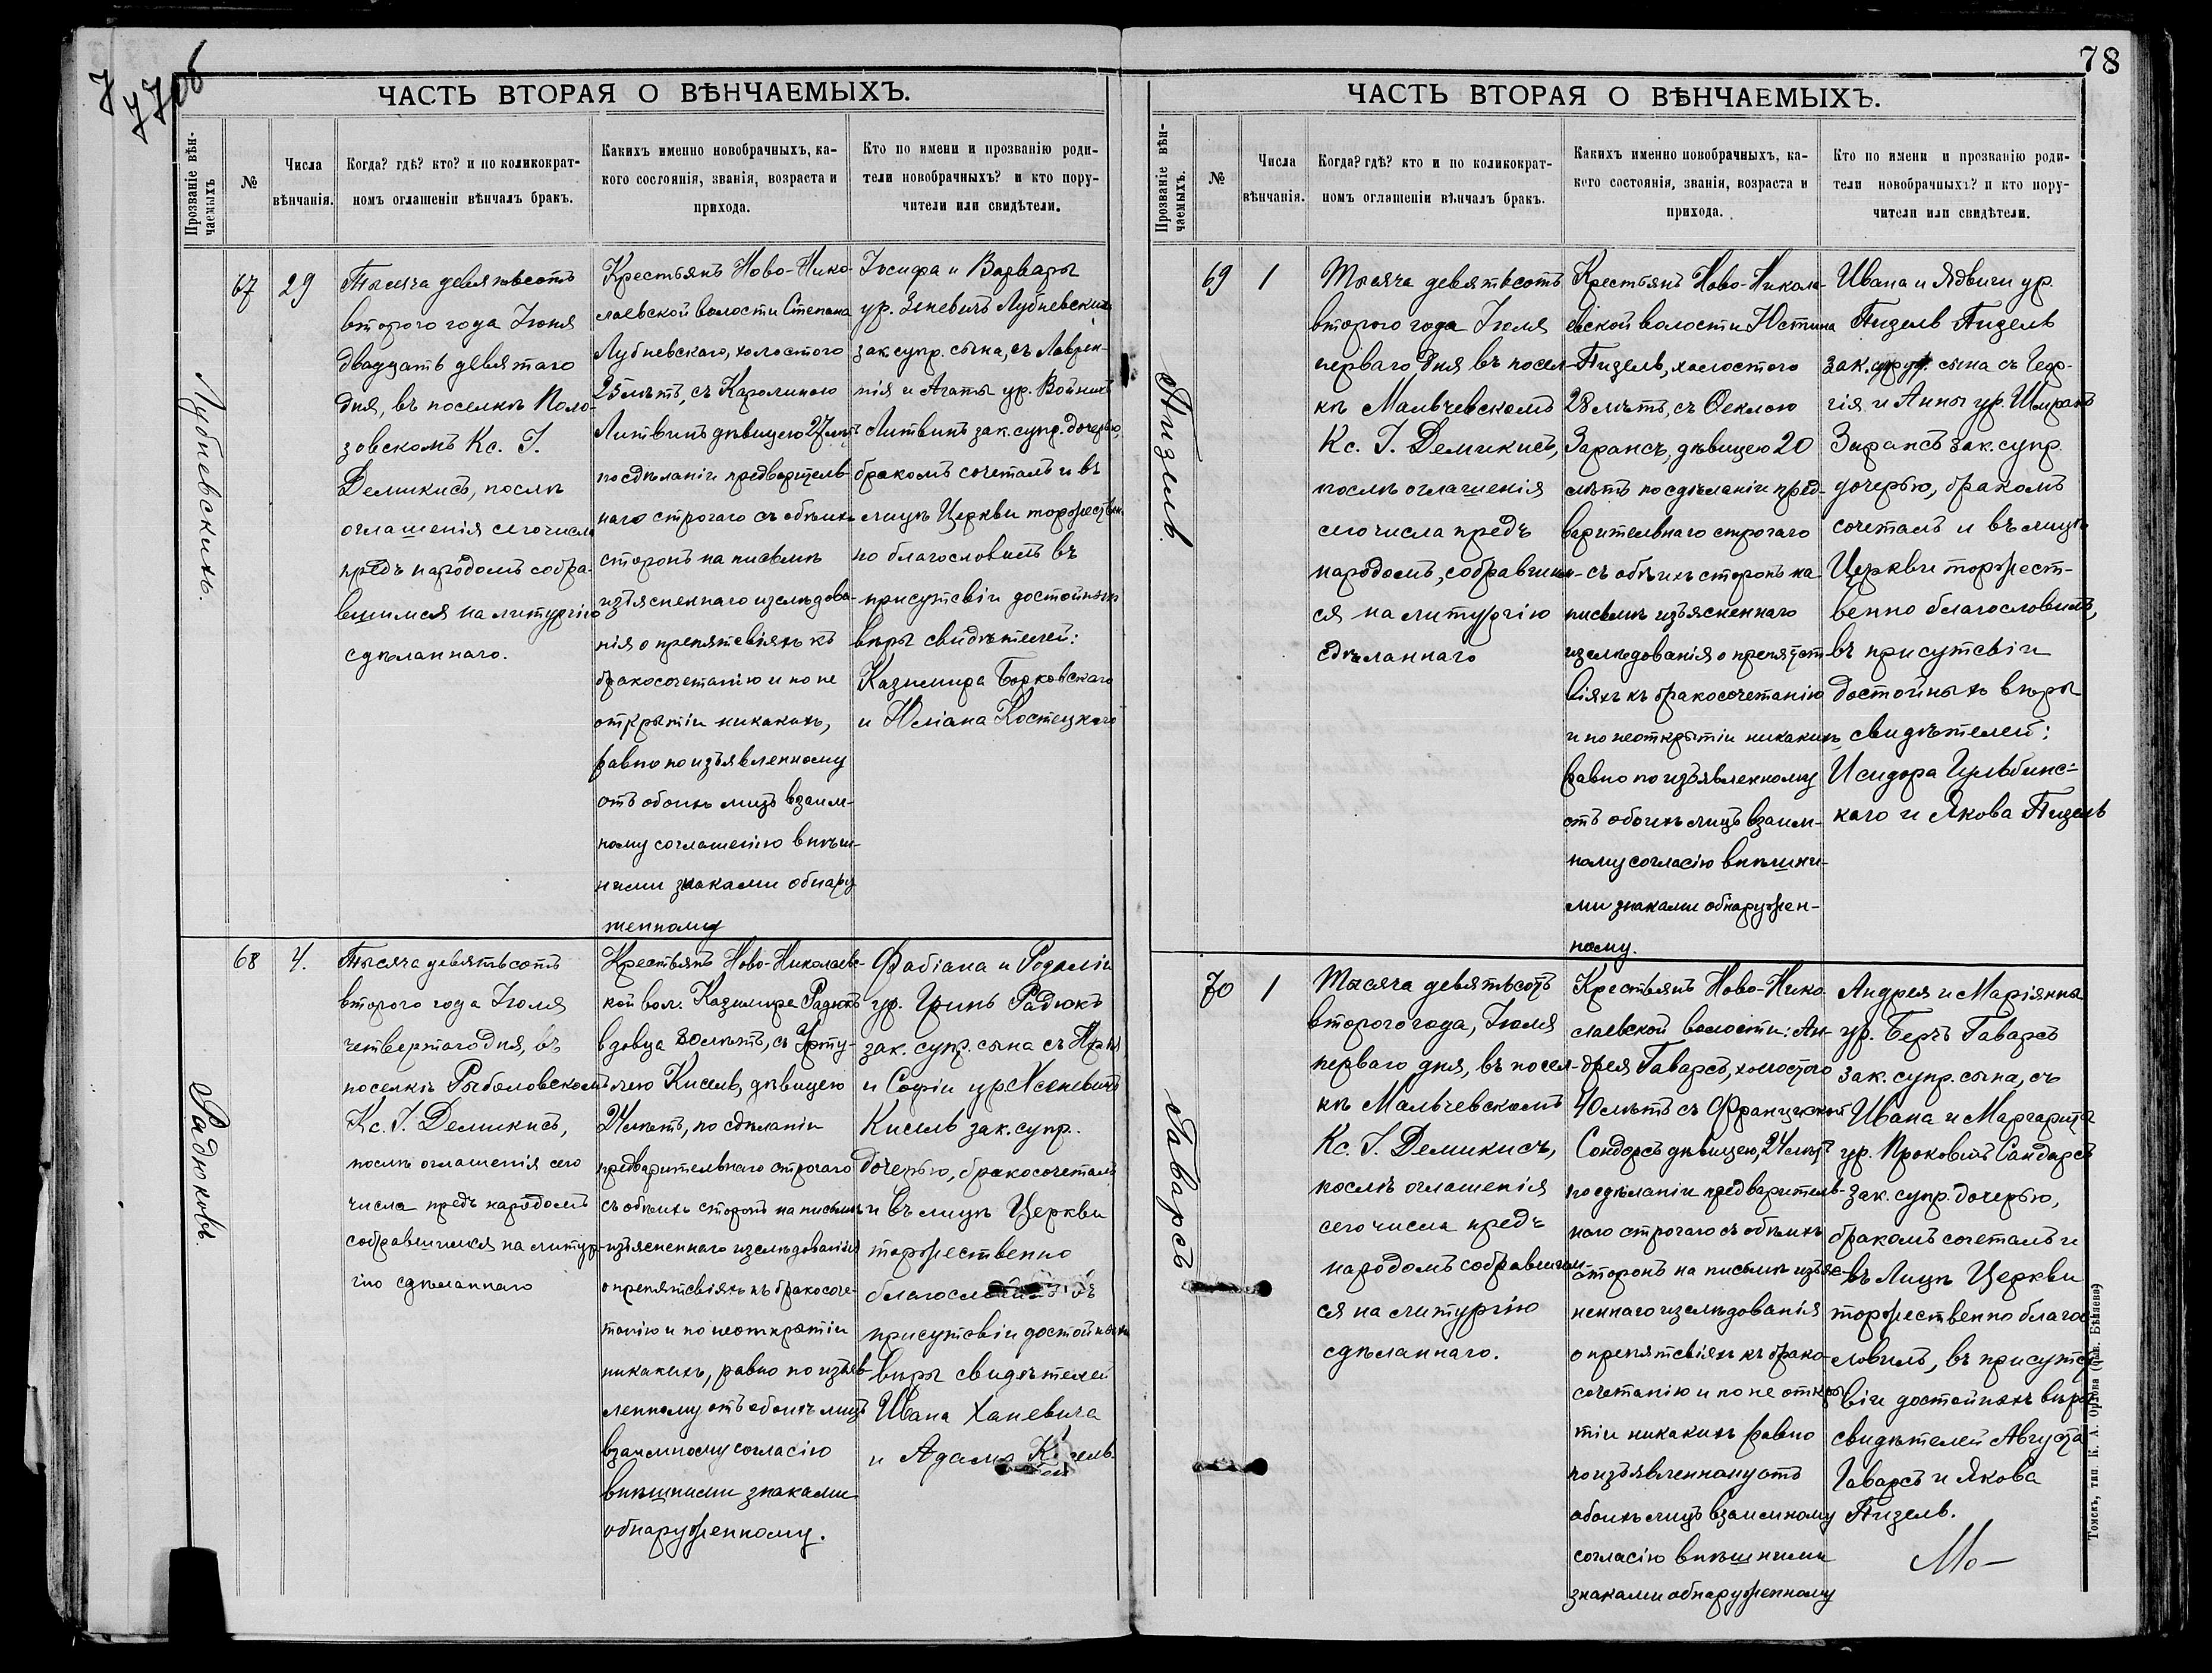 7
77об
ЧАСТЬ ВТОРАЯ О ВѢНЧАЕМЫХЪ.
Прозваніе вѣн-
чаемыхъ
№
Числа
вѣнчанія.
Когда? гдѣ? кто? и по коликократ-
номъ оглашеніи вѣнчалъ бракъ.
Какихъ именно новобрачныхъ, ка-
кого состоянія, званія, возраста и
прихода.
Кто по имени и прозванію роди-
тели новобрачныхъ? и кто пору-
чители или свидѣтели.
Лубневскихъ.
67
29
Тысяча девятьсотъ
второго года Іюня
двадцать девятаго
дня, въ поселкѣ Поло-
зовскомъ Кс. І.
Демикисъ, послѣ
оглашенія сего числа
предъ народомъ собра-
вшимся на литургію
сдѣланнаго.
Крестьянъ Ново-Нико-
лаевской волости Степана
Лубневскаго, холостого
25 лѣтъ, съ Каролиною
Литвинъ дѣвицею 27 лѣтъ
по сдѣланіи предваритель-
наго строгаго съ обѣихъ
сторонъ на письмѣ
изъясненнаго изслѣдова-
нія о препятсвіяхъ къ
бракосочетанію и по не
открытіи никакихъ,
равно по изъявленному
отъ обоихъ лицъ взаим-
ному соглашенію внѣш-
ними знаками обнару
женному
Іосифа и Варвары
ур. Зеневичъ Лубневскихъ
зак. супр. сына, съ Лаврен-
тія и Агаты ур. Войничъ
Литвинъ зак. супр. дочерью,
бракомъ сочеталъ и въ
лицѣ Церкви торжествен-
но благословилъ въ
присутсвіи достойныхъ
вѣры свидѣтелей:
Казимира Борковскаго
и Юліана Костецкаго
Радюковъ.
68
4.
Тысяча девятьсотъ
второго года Іюля
четвертаго дня, въ
поселкѣ Рыболовскомъ
Кс. І. Демикисъ,
послѣ оглашенія сего
числа предъ народомъ
собравшимся на литур-
гію сдѣланнаго
Крестьянъ Ново-Николаевс-
кой вол. Казимира Радюкъ
вдовца 30 лѣтъ, съ Урту-
лею Кисель, дѣвицею
24 лѣтъ, по сдѣланіи
предварительнаго строгаго
съ обѣихъ сторонъ на письмѣ
изъясненнаго изслѣдованія
о препятсвіяхъ къ бракосоче-
танію и по неоткрытіи
никакихъ, равно по изъяв-
ленному отъ обоихъ лицъ
взаимному согласію
внѣшними знаками
обнаруженному.
Фабіана и Розаліи
ур. Гринь Радюкъ
зак. супр. сына съ
и Софіи ур.
Кисель зак. супр.
дочерью, бракосочеталъ
и въ лицѣ Церкви
торжественно
благословилъ въ
присутсвіи достойныхъ
вѣры свидѣтелей
Ивана Ханевича
и Адама Кисель
78
ЧАСТЬ ВТОРАЯ О ВѢНЧАЕМЫХЪ.
Прозваніе вѣн-
чаемыхъ.
№
Числа
вѣнчанія.
Когда? гдѣ? кто и по коликократ-
номъ оглашеніи вѣнчалъ бракъ.
Какихъ именно новобрачныхъ, ка-
кого состоянія, званія, возраста и
прихода.
Кто по имени и прозванію роди-
тели новобрачныхъ? и кто пору-
чители или свидѣтели.
Пизель.
69
1
Тысяча девятьсотъ
второго года Іюля
перваго дня въ посел-
кѣ Мальчевскомъ
Кс. І. Демикисъ,
послѣ оглашенія
сего числа предъ
народомъ, собравшим-
ся на литургію
сдѣланнаго
Крестьянъ Ново-Никола-
евской волости Юстина
Пизель, холостого
28 лѣтъ, съ Ѳеклою
Зарансъ, дѣвицею 20
лѣтъ по сдѣланіи пред-
варительнаго строгаго
съ обѣихъ сторонъ на
письмѣ изъясненнаго
изслѣдованія о препятст-
віяхъ къ бракосочетанію
и по неоткрытіи никакихъ,
равно по изъявленному
отъ обоихъ лицъ взаим-
ному согласію внѣшни-
ми знаками обнаружен-
ному.
Ивана и Ядвиги ур.
Пизель Пизель
зак. супр. сына съ Геор-
гія и Анны ур.
Зарансъ зак. супр.
дочерью, бракомъ
сочеталъ и въ лицѣ
Церкви торжест-
венно благословилъ,
въ присутсвіи
достойныхъ вѣры
свидѣтелей:
Исидора Гульбинс-
каго и Якова Пизель
Гаварсъ
70
1
Тысяча девятьсотъ
второго года, Іюля
перваго дня, въ посел-
кѣ Мальчевскомъ
Кс. І. Демикисъ,
послѣ оглашенія
сего числа предъ
народомъ собравшим-
ся на литургію
сдѣланнаго.
Крестьянъ Ново-Нико-
лаевской волости: Ан-
дрея Гаварсъ, холостого
40 лѣтъ съ Францишкой
Сондорсъ дѣвицею, 24 лѣтъ
по сдѣланіи предваритель-
наго строгаго съ обѣихъ
сторонъ на письмѣ изъяс-
неннаго изслѣдованія
о препятсвіяхъ къ брако-
сочетанію и по не откры
тіи никакихъ равно
по изъявленному отъ
обоихъ лицъ взаимному
согласію внѣшними
знаками обнаруженному
Андрея и Маріянны
ур. Берчъ Гаварсъ
зак. супр. сына, съ
Ивана и Маргариты
ур. Проковичъ Сандарсъ
зак. супр. дочерью,
бракомъ сочеталъ и
въ Лицѣ Церкви
торжественно благос-
ловилъ, въ присутс
віи достойныхъ вѣры
свидѣтелей Августа
Гаварсъ и Якова
Пизель.
Томскъ, тип. К. А. Орлова (быв. Бѣляева)